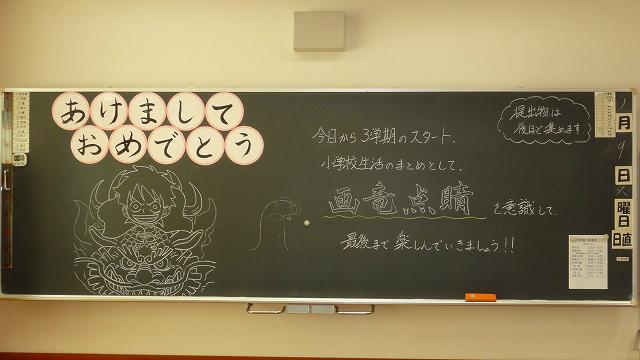 あけまして
おめでとう
今日から3学期のスタート、
小学校生活のまとめとして、
画竜点睛を意識して、
最後まで楽しんでいきましょう!!
提出物は
後ほど集めます
1
月
9
日
曜日
日直